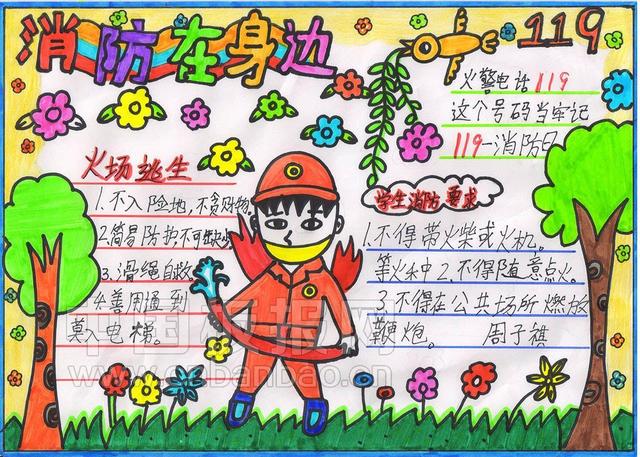 消防在身边
119
火警电话119
这个号码当牢记
119－消防日
火场逃生
1.不入险地，不贪财物。
2.简易防护不可缺少
3.滑绳自救
4.善用通到
莫入电梯。
学生消防要求
1.不得带火柴或火机。
等火种 2.不得随意点火。
3.不得在公共场所燃放
鞭炮。 周子祺